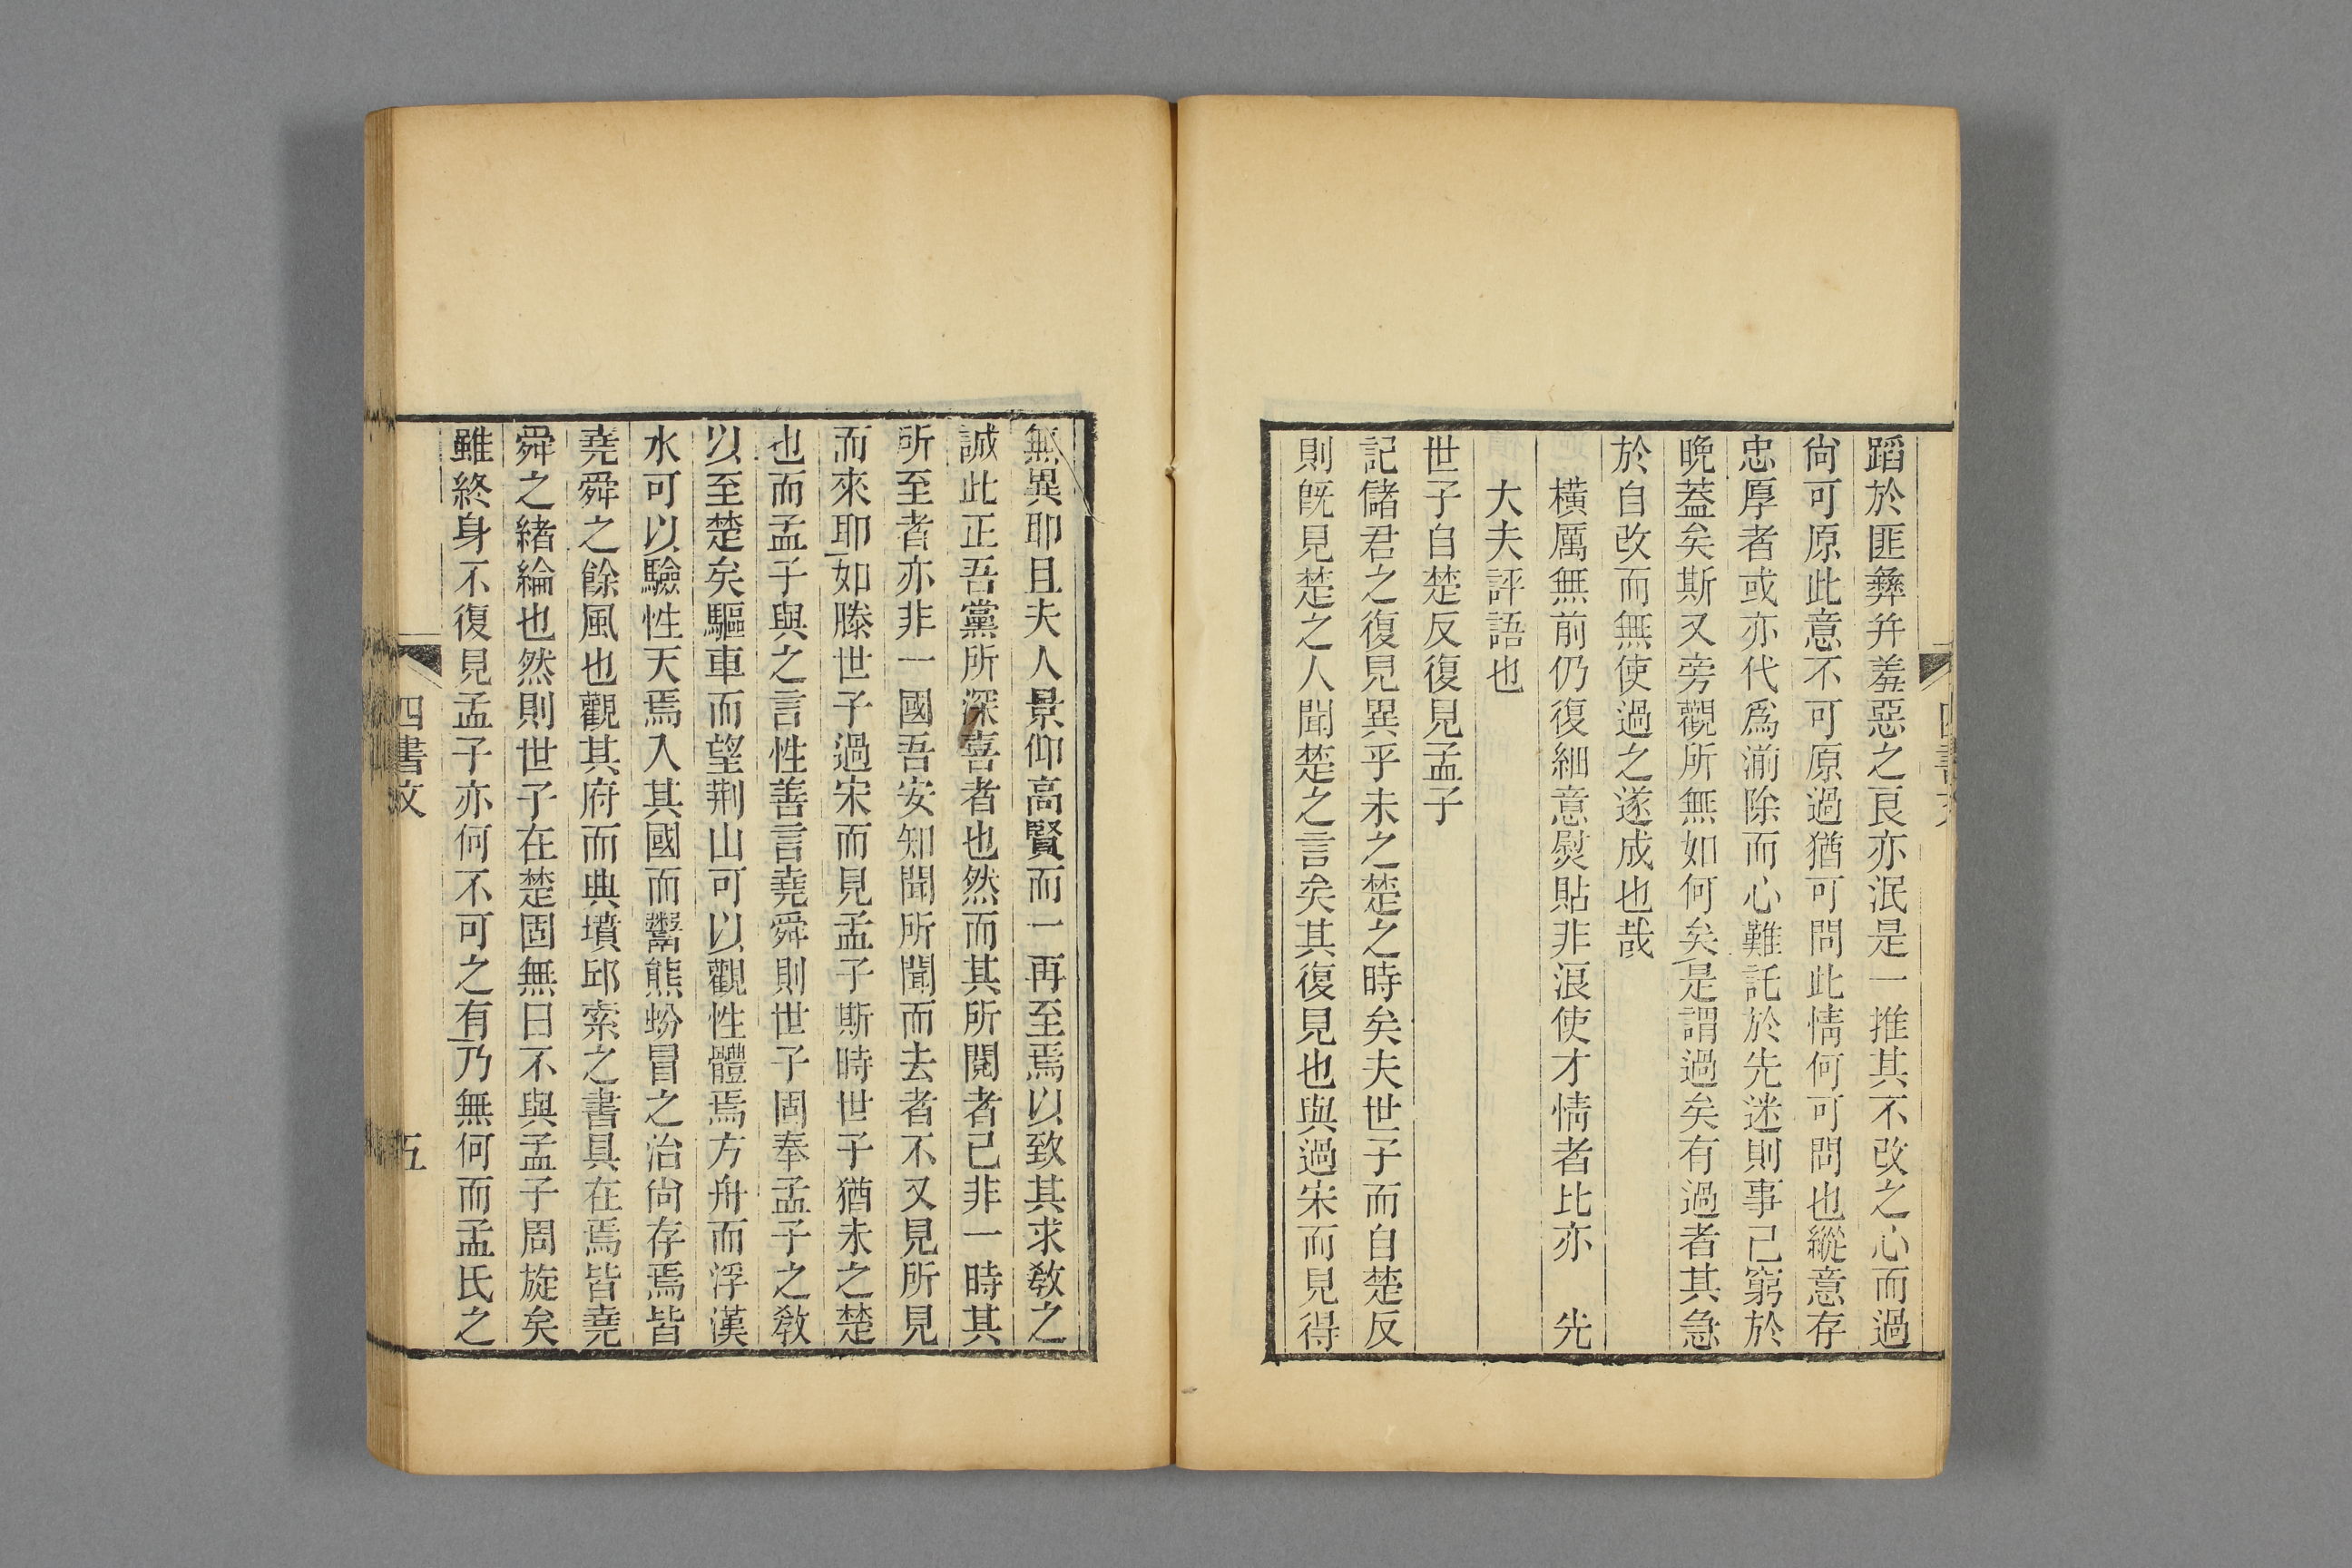 蹈於匪彝并羞惡之良亦泯是一推其不改之心而過
尙可原此意不可原過猶可問此情何可問也縱意存
忠厚者或亦代爲湔除而心難託於先迷則事已窮於
晚蓋矣斯又旁觀所無如何矣是謂過矣有過者其急
於自改而無使過之遂成也哉
橫厲無前仍復細意熨貼非浪使才情者比亦　先
大夫評語也
世子自楚反復見孟子
記儲君之復見異乎未之楚之時矣夫世子而自楚反
則旣見楚之人聞楚之言矣其復見也與過宋而見得
無異耶且夫人景仰高賢而一再至焉以致其求敎之
誠此正吾黨所深喜者也然而其所閱者已非一時其
所至者亦非一國吾安知聞所聞而去者不又見所見
而來耶如滕世子過宋而見孟子斯時世子猶未之楚
也而孟子與之言性善言堯舜則世子固奉孟子之敎
以至楚矣驅車而望荆山可以觀性體焉方舟而浮漢
水可以驗性天焉入其國而鬻熊蚡冒之治尙存焉皆
堯舜之餘風也觀其府而典墳邱索之書具在焉皆堯
舜之緖綸也然則世子在楚固無日不與孟子周旋矣
雖終身不復見孟子亦何不可之有乃無何而孟氏之
四書文
五